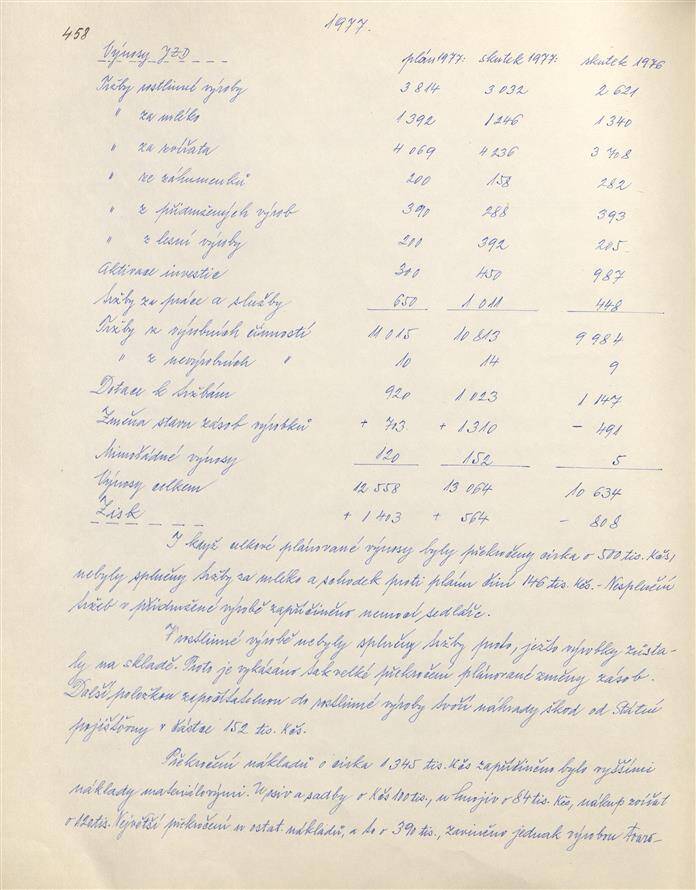 458
1977.
Výnosy JZD plán 1977: skutek 1977: skutek 1976
Tržby rostlinné výroby 3 814 3 032 2 621
" za mléko 1 392 1 246 1 340
" za zvířata 4 069 4 236 3 708
" ze záhumenků 200 158 282
" z přidružených výrob 390 288 393
" z lesní výroby 200 392 205
Aktivace investic 300 450 987
tržby za práce a služby 650 1 011 448
Tržby z výrobních činností 11 015 10 813 9 984
" z nevýrobních " 10 14 9
Dotace k tržbám 920 1 023 1 147
Změna stavu zásob výrobků + 703 + 1310 - 491
Mimořádné výnosy 120 152 5
Výnosy celkem 12 558 13 064 10 634
Zisk + 1 403 + 564 - 808
I když celkové plánované výnosy byly překročeny cirka o 500 tis. Kčs,
nebyly splněny tržby za mléko a schodek proti plánu činí 146 tis. Kčs. - Nesplnění
tržeb v přidružené výrobě zapříčiněno nemocí sedláře.
V rostlinné výrobě nebyly splněny tržby proto, ježto výrobky zůsta-
ly na skladě. Proto je vykázáno tak velké překročení plánované změny zásob.
Další položkou započitatelnou do rostlinné výroby tvoří náhrady škod od Státní
pojišťovny v částce 152 tis. Kčs.
Překročení nákladů o cirka 1 345 tis. Kčs zapříčiněno bylo vyššími
náklady materiálovými. U osiv a sadby o Kčs 100 tis., u hnojiv o 84 tis. Kčs, nákup zvířat
o 120 tis. Největší překročení u ostat. nákladů, a to o 390 tis., zaviněno jednak výrobou